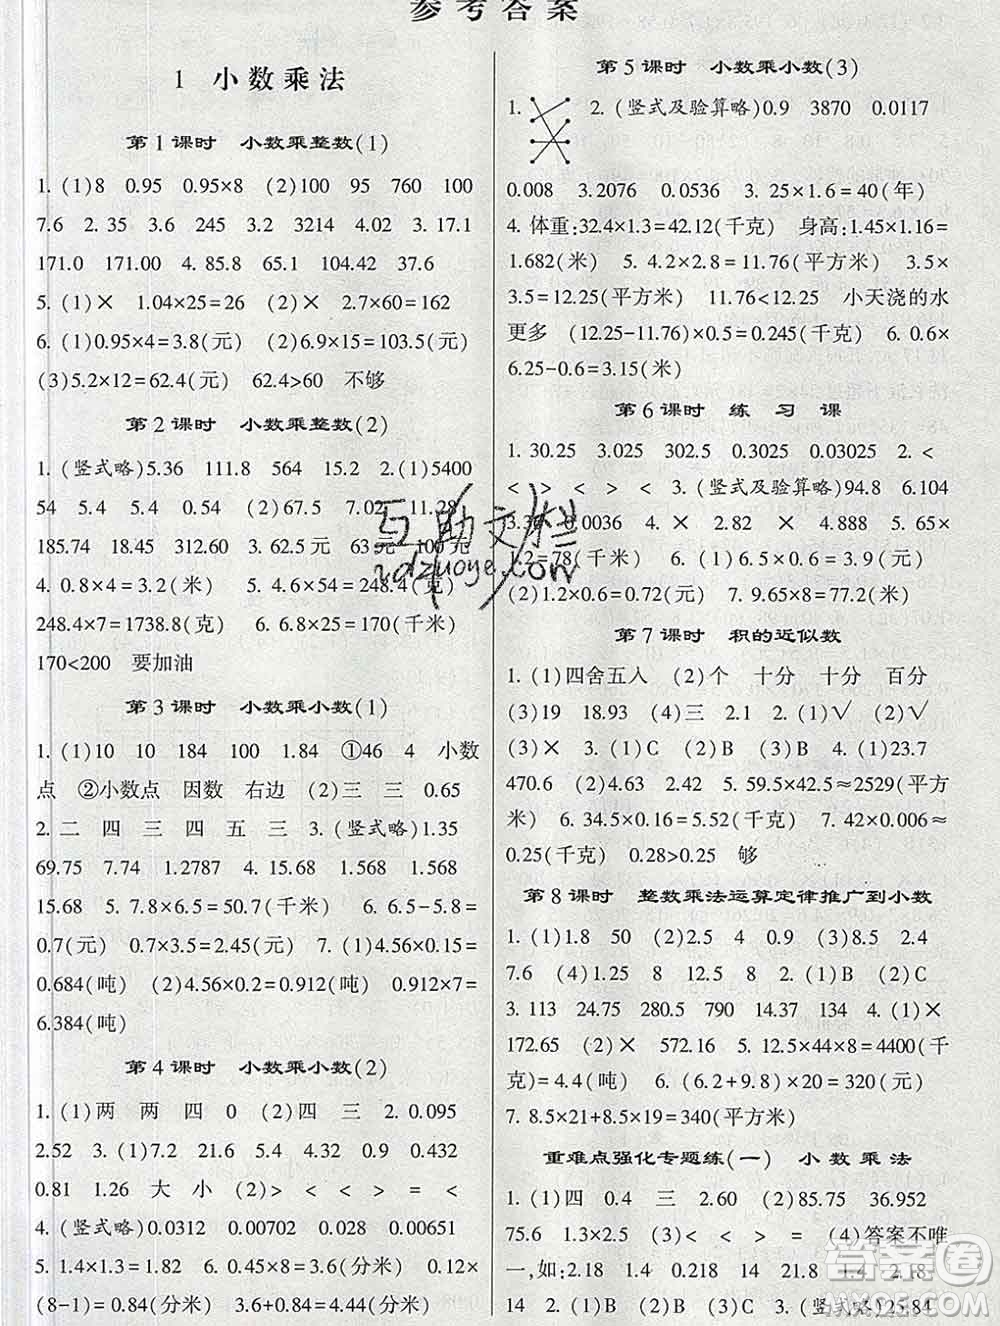 参考答案
1 小数乘法
第1课时 小数乘整数(1)
1. (1)8 0.95 0.95×8 (2)100 95 760 100
7.6 2. 35 3.5 246 24.6 245 2.45 3. 17.1
171.0 171.00 4. 85.8 65.1 104.42 37.6
5. (1)× 1.04×25=26 (2)× 2.7×60=162
6. (1)0.95×4=3.8(元) (2)6.9×15=103.5(元)
(3)5.2×12=62.4(元) 62.4>60 不够
第2课时 小数乘整数(2)
1. (竖式略)5.36 111.8 564 15.2 2. (1)5400
54 5.4 5.4 0.54 (2)67.5 7.02 11.28
185.74 18.45 312.60 3. 62.5元 63元 100元
4. 0.8×4=3.2(米) 5. 4.6×54=248.4(克)
248.4×7=1738.8(克) 6. 6.8×25=170(千米)
170<200 要加油
第3课时 小数乘小数(1)
1. (1)10 10 184 100 1.84 ①46 4 小数
点 ②小数点 因数 右边 (2)三 三 0.65
2. 二 四 三 四 五 三 3. (竖式略)1.35
69.75 7.74 1.2787 4. 15.68 1.568 1.568
15.68 5. 7.8×6.5=50.7(千米) 6. 6.5-5.8=
0.7(元) 0.7×3.5=2.45(元) 7. (1)4.56×0.15
=0.684(吨) (2)4.56×0.2=0.912(吨) 0.912×7=
6.384(吨)
第4课时 小数乘小数(2)
1. (1)两 两 四 0 (2)四 三 2. 0.095
2.52 3. (1)2.16 7.2 21.6 0.54 0.9 0.432
0.81 1.26 大 小 (2)> < < < = <
4. (竖式略)0.0312 0.00702 0.028 0.00651
5. 1.4×1.3=1.82(米) 6. 0.45×8=3.6(分米) 0.12×
(8-1)=0.84(分米) 3.6+0.84=4.44(分米)
第5课时 小数乘小数(3)
1. 2. (竖式及验算略)0.9 3870 0.0117
0.008 3.2076 0.0536 3. 25×1.6=40(年)
4. 体重:32.4×1.3=42.12(千克) 身高:1.45×1.16=
1.682(米) 5. 4.2×2.8=11.76(平方米) 3.5×
3.5=12.25(平方米) 11.76<12.25 小天浇的水
更多 (12.25-11.76)×0.5=0.245(千克) 6. 0.6×
6.25-0.6=3.15(米)
第6课时 练习课
1. 30.25 3.025 302.5 0.3025 0.03025 2. <
< > < > < 3. (竖式及验算略)94.8 6.104
3.36 0.0036 4. × 2.82 × 4.888 5. 65×
1.2=78(千米) 6. (1)6.5×0.6=3.9(元)
(2)1.2×0.6=0.72(元) 7. 9.65×8=77.2(米)
第7课时 积的近似数
1. (1)四舍五入 (2)个 十分 十分 百分
(3)19 18.93 (4)三 2.1 2. (1)√ (2)√
(3)× 3. (1)C (2)B (3)B 4. (1)23.7
470.6 (2)4.63 2.42 5. 59.5×42.5≈2529(平方
米) 6. 34.5×0.16=5.52(元) 7. 42×0.006≈
0.25(千克) 0.28>0.25 够
第8课时 整数乘法运算定律推广到小数
1. (1)1.8 50 (2)2.5 4 0.9 (3)8.5 2.4
7.6 (4)1.25 8 12.5 8 2. (1)B (2)C
3. 113 24.75 280.5 790 14.37 134 4. (1)×
172.65 (2)× 132.5 5. 12.5×44×8=4400(千
克)=4.4(吨) 6. (6.2+9.8)×20=320(元)
7. 8.5×21+8.5×19=340(平方米)
重难点强化专题练(一) 小数乘法
1. (1)四 0.4 三 2.60 (2)85.75 36.952
75.6 1.3×2.5 (3)< < > = (4)答案不唯
一,如:2.18 1.4 0.218 14 21.8 1.4 2.18
14 2. (1)B (2)B (3)C 3. (竖式略)25.84
互助文档
hdzuoye.com
答案圈
MXQE.COM